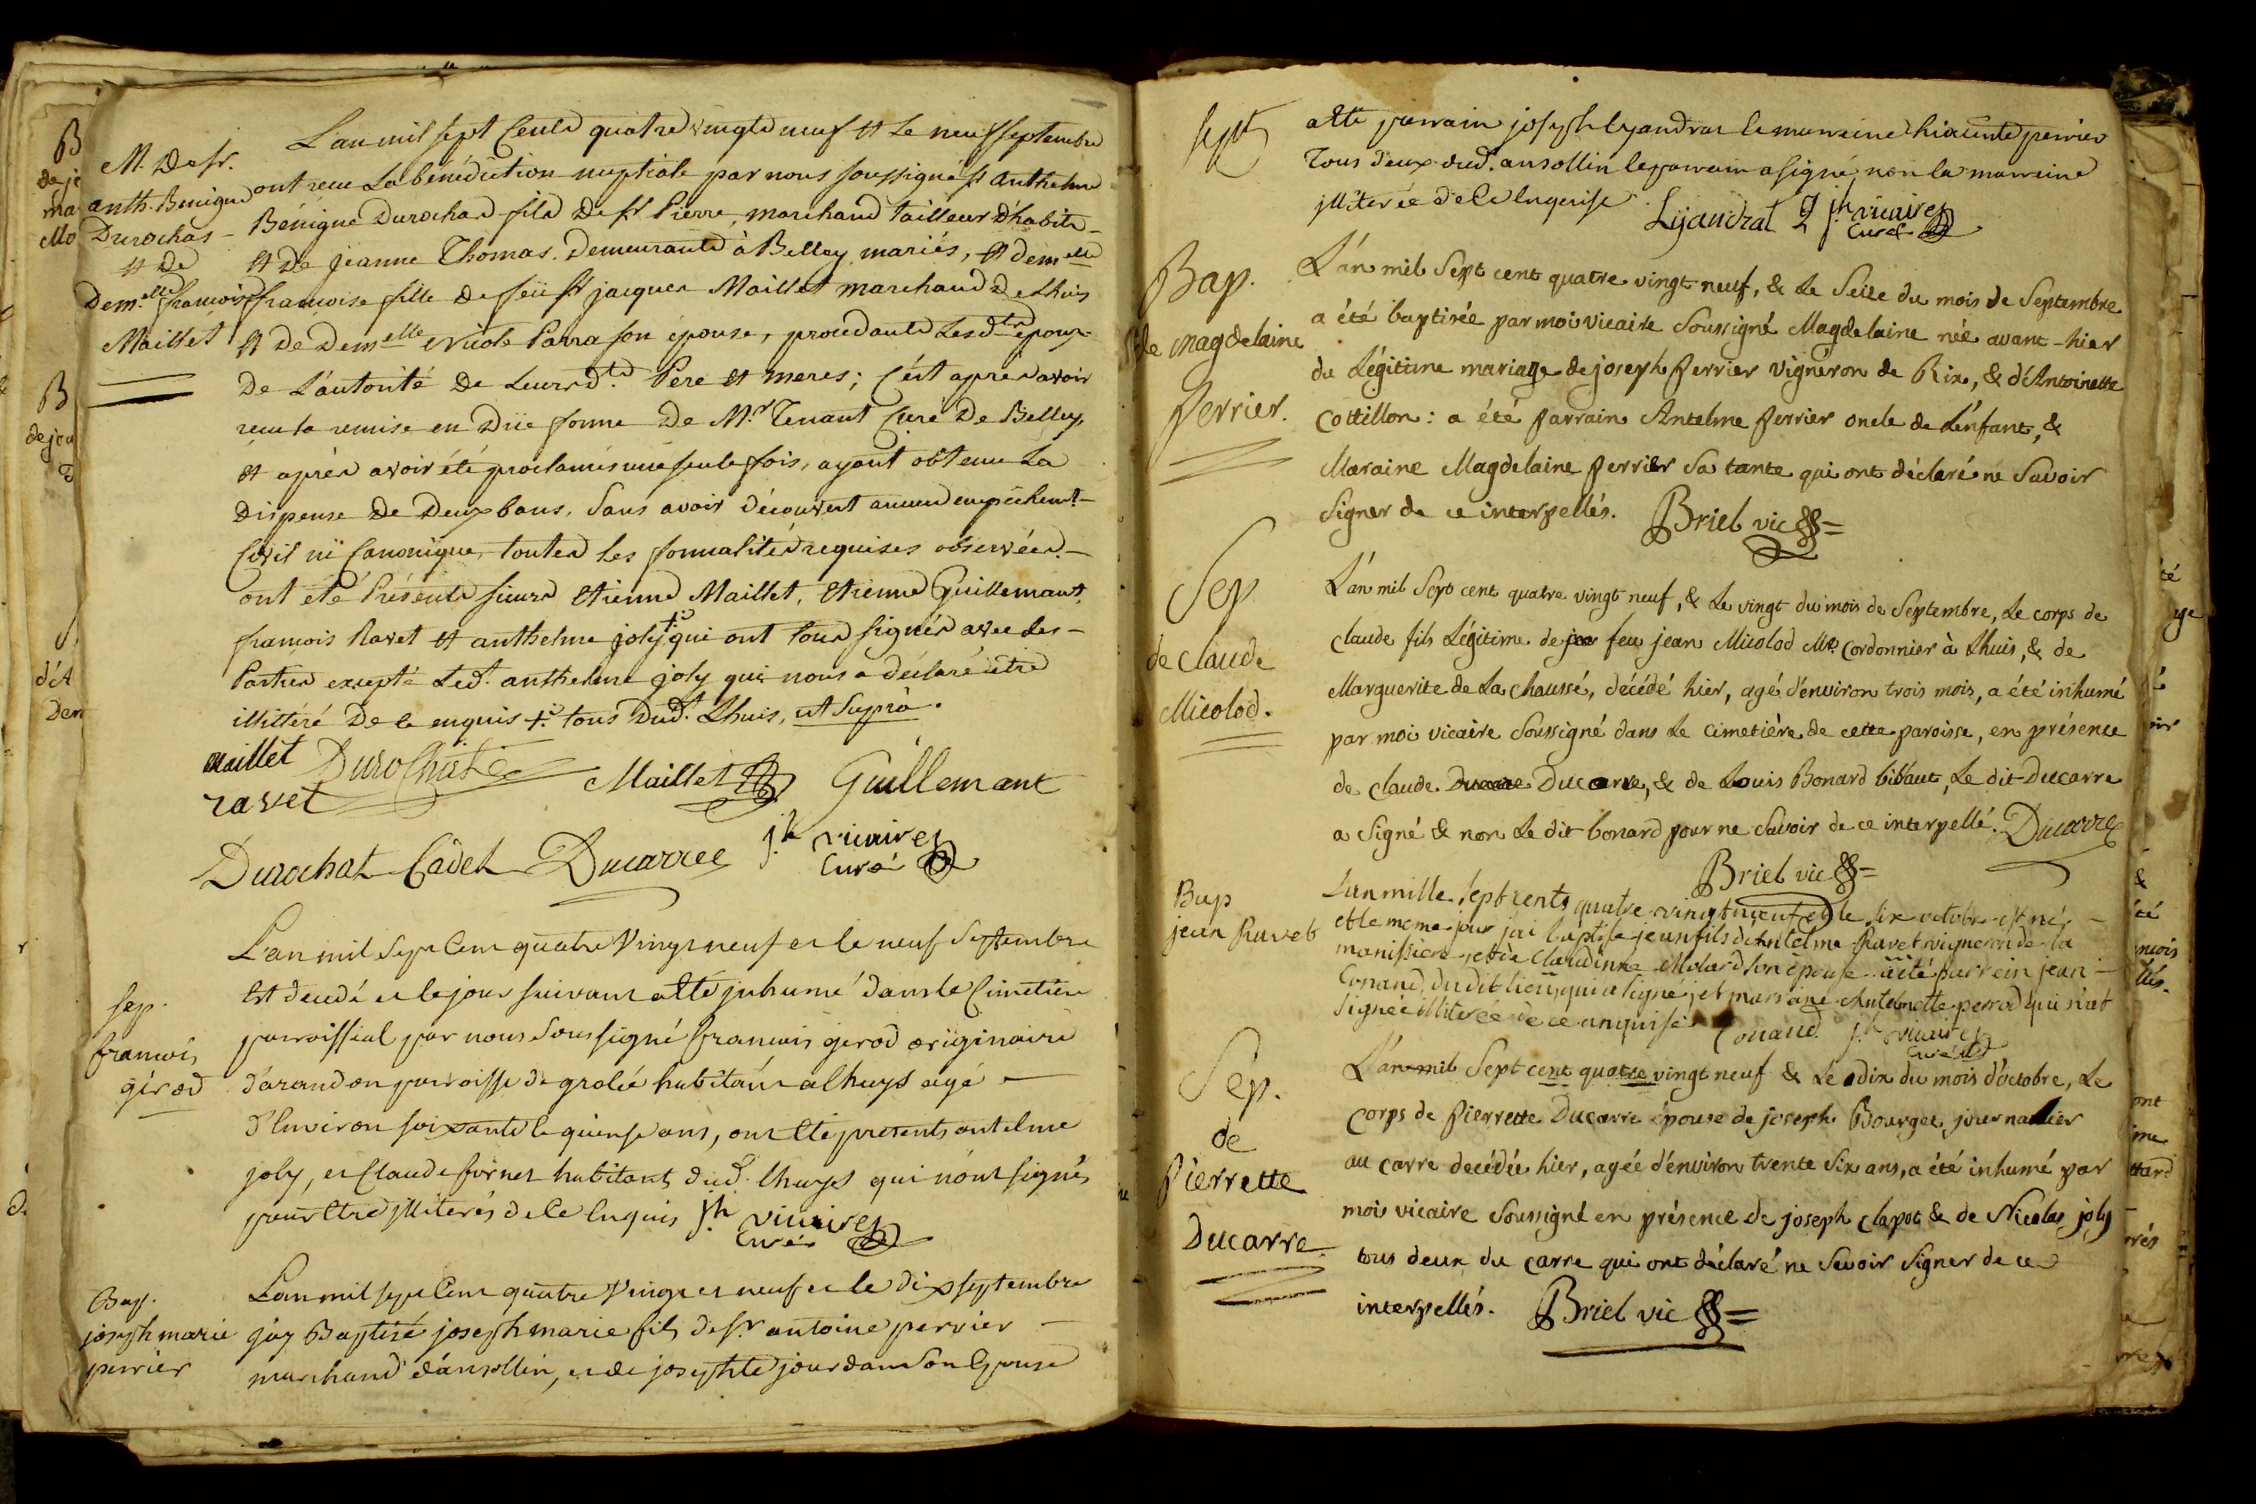 M. De sr.
anth. Benigne
Durochas
et De
Dem.elle francoise
Maillet
L'an mil sept Cents quatre vingts neuf et le neuf septembre
ont recu La bénédiction nuptiale par nous soussigné sr anthelme
Bénigne Durochas fils De sr Pierre, marchand tailleur d'habits
et De jeanne Thomas. Demeurants à Belley mariés, et demelle
francoise fille de feu sr jacques Maillet marchand de Lhuis
et De Demelle Nicole Parra son épouse, procedants Lesdts époux
De L'autorité De Leursdts. Pere et meres; C'ést apres avoir
recu la remise en Düe forme De Mr. Tenant Curé De Belley,
et après avoir été proclamés une seule fois, ayant obtenu La
dispense De Deux bans. Sans avoir découvert aucun empêchemt.
Civil ni Canonique, toutes les formalités requises observées.
ont été Présents sieurs Etienne Maillet, Etienne Guillemant,
francois Ravet et anthelme joly qui ont tous signés avec les
Parties excepté Ledt. anthelme joly qui nous a déclaré être
illittéré De ce enquis +: tous Dudt. Lhuis, ut Suprà.
Maillet Durochat Maillet Guillemant
ravet
Durochat Cadet Ducarre jh vicaire
Curé
Sep.
francois
gérod
L'an mil Sept Cent quatre Vingt neuf et le neuf Septembre
Est decedé et le jour suivant a été inhumé dans le Cimetiere
parroissial par nous Soussigné francois gerod originaire
d'arandon parroisse de grolée habitant a lhuys agé
d'Environ soixante le quinse ans, ont été presents antelme
joly, et Claude fornet habitants dud. lhuys qui n'ont signés
pour être illiterés de Ce Enquis jh. vicaire
Curé
Bap.
joseph marie
perrier
L'an mil sept Cent quatre Vingt et neuf et le dix septembre
j'ay Baptisé joseph marie fils de sr antoine perrier
marchand d'ansollin, et de josephte jourdan Son Epouse
sept
a été parrain joseph lyandrat la marraine hiacinte perrier
Tous deux dud. ansollin le parrain a signé, non la marraine
illiterée de Ce Enquise. Lyandrat jh. vicaire
Curé
Bap.
de Magdelaine
Perrier.
L'an mil Sept cent quatre vingt neuf, & Le Seize du mois de Septembre
a été baptisée par moi vicaire Soussigné Magdelaine née avant-hier
du Légitime mariage de joseph Perrier vigneron de Rix, & d'Antoinette
Cottillon: a été Parrain Antelme Perrier oncle de L'énfant, &
Maraine Magdelaine Perrier Sa tante qui ont déclaré ne Savoir
Signer de ce interpellés. Briel vic
Sep.
de Claude
Micolod.
L'an mil Sept cent quatre vingt neuf, & Le vingt du mois de Septembre, Le corps de
Claude fils Légitime de feu jean Micolod Me. Cordonnier à Lhuis, & de
Marguerite de La Chaussé, décédé hier, agé d'énviron trois mois, a été inhumé
par moi vicaire Soussigné dans Le cimetière de cette paroisse, en présence
de Claude Ducarre, & de Louis Bonard bibaut, Le dit Ducarre
a Signé & non Le dit bonard pour ne Savoir de ce interpellé. Ducarre
Briel vic
Bap
jean Ravet
L'an mille Sept cents quatre vingt neuf et le six octobre est né
et le meme jour jai baptisé jean fils d'Antelme Ravet vigneron de la
manissiere, et de Claudinne Molard son épouse a été parrein jean
Conand du dit lieu qui a signé, et marraine Antoinette perrod qui n'a
signée illiterée de ce enquise Conand. jh. vicaire
Curé
Sep.
de
Pierrette
Ducarre.
L'an mil Sept cent quatre vingt neuf & Le dix du mois d'octobre, Le
Corps de Pierrette Ducarre épouse de joseph Bourget, journallier
au carre decédée hier, agée d'énviron trente Six ans, a été inhumé par
mois vicaire Soussigné en présence de joseph Clapot & de Nicolas joly
tous deux du Carre qui ont déclaré ne Savoir Signer de ce
interpellés. Briel vic